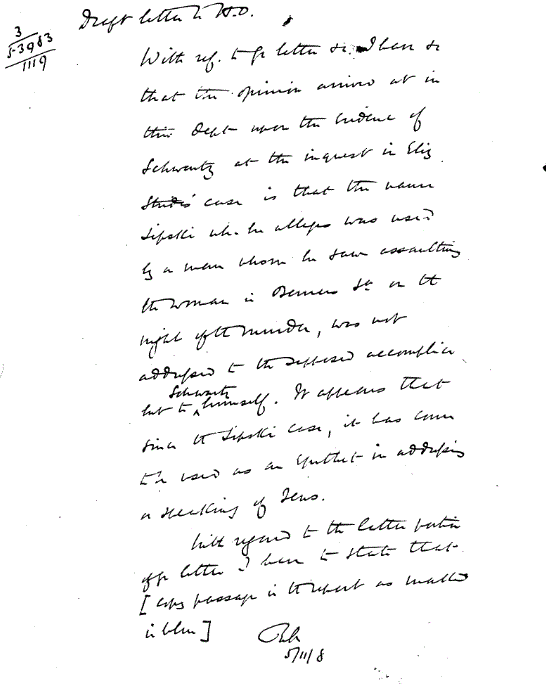 Draft letter to H.O.
3
53983
1119
With ref. to yr letter &c. I have &c
that the opinion arrived at in
this Dept upon the evidence of
Schwartz at the inquest in Eliz
Stride's case is that the name
Lipski wh. he alleges was used
by a man whom he saw assaulting
the woman in Berner St on the
night of the murder, was not
addressed to the supposed accomplice
but to Schwartz himself. It appears that
since the Lipski case, it has come
to be used as an epithet in addressing
or speaking of Jews.
With regard to the latter portion
of yr letter I have to state that
[copy passage in the report as marked
in blue]
5/11/8